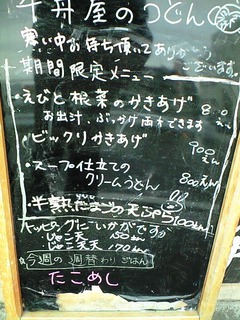 牛丼屋のうどん
寒い中お待ち頂いてありがとうございます。
期間限定メニュー
・えびと根菜のかきあげ
お出汁、ぶっかけ両木できます
・ビックリかきあげ 900えん
・スープ仕立ての
クリームうどん 800えん
・半熟たまごの天ぷら 100えん
トッピングにいかがですか
150
170
☆今週の週替わりごはん
たこめし